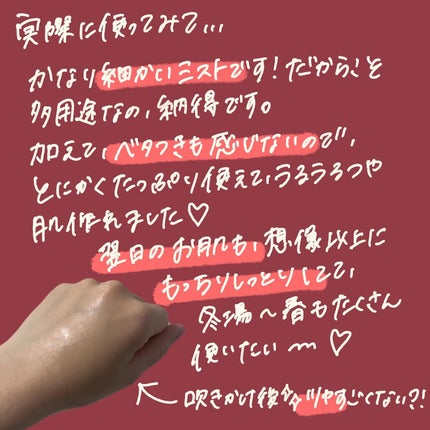 実際に使ってみて...
かなり細かいミストです！だからこそ
多用途なの、納得です。
加えて、ベタつきも感じないので、
とにかくたっぷり使えて、うるうるつや
肌作れました♡
翌日のお肌も、想像以上に
もっちりしっとりしてて、
冬場〜春もたくさん
使いたい〜♡
吹きかけ後ツヤすごくない?!